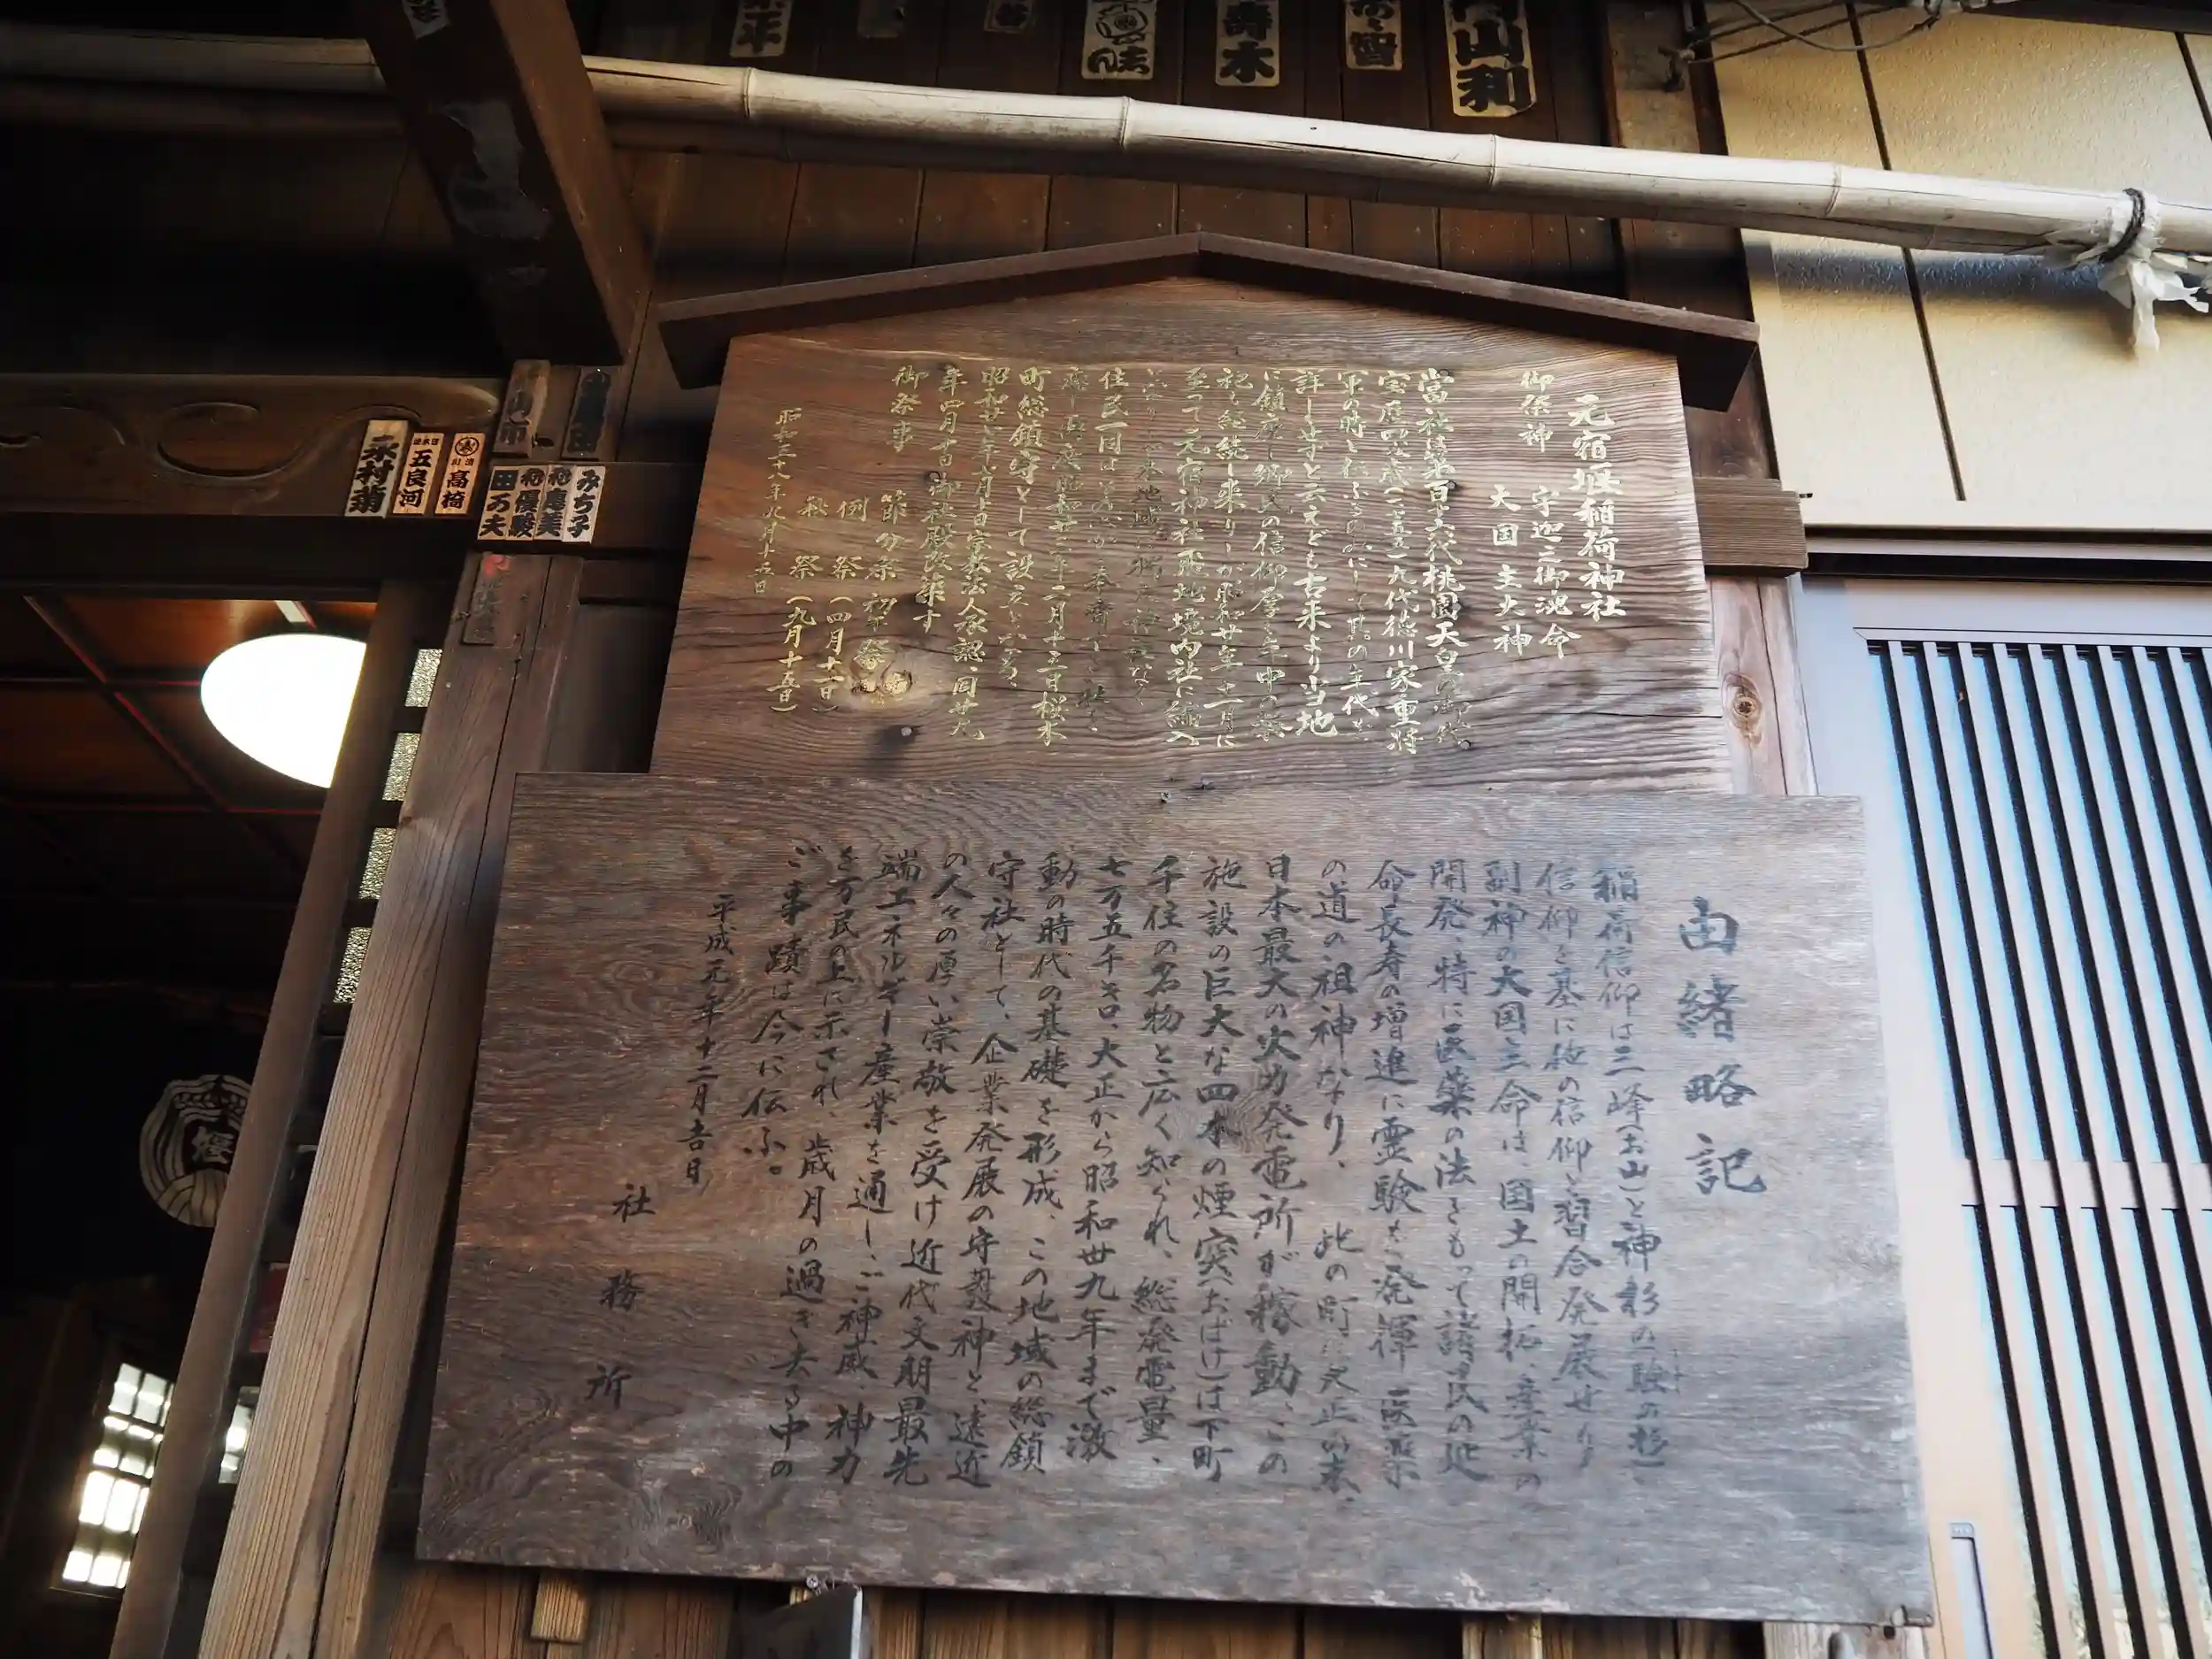 元宿堰稲荷神社
御祭神 宇迦之御魂命
大国主大神
當社は第百十六代桃園天皇の御代
宝暦四、五歳(一七五五)九代徳川家重将
軍の時と伝ふるのみにして其の年代を
詳しせずと云えども古来より当地
に鎮座し郷民の信仰厚く年中の祭
祀を継続し来りしが昭和廿年十一月に
至って元宿神社飛地境内社に編入
住民一同は
二月十五日桜木
町総鎮守として設立
昭和廿八年七月十日宗教法人承認、同廿九
年四月十日御社殿改築す
御祭事 節分祭 初午祭
例祭(四月十一日)
秋祭(九月十五日)
昭和三十八年九月十五日
由緒略記
稲荷信仰は三峰(お山)と神杉の(験の杉)
信仰を基に他の信仰と習合発展せり
副神の大国主命は、国土の開拓、産業の
開発、特に医薬の法をもって諸民の延
命長寿の増進に霊験を発揮し医薬
の道の祖神なり、此の町に大正の末、
日本最大の火力発電所が稼動、この
施設の巨大な四本の煙突(おばけ)は下町
千住の名物と広く知られ、総発電量、
七万五千キロ、大正から昭和卅九年まで激
動の時代の基礎を形成、この地域の総鎮
守社として、企業発展の守護神と、遠近
の人々の厚い崇敬を受け近代文明最先
端エネルギー産業を通し、ご神威、神力
を万民の上に示され、歳月の過ぎ去る中の
ご事蹟は今に伝ふ。
平成元年十二月吉日
社務所
永村菊
五良河
高橋
田乃夫
優駿
恵美
みち子
山利
寿木